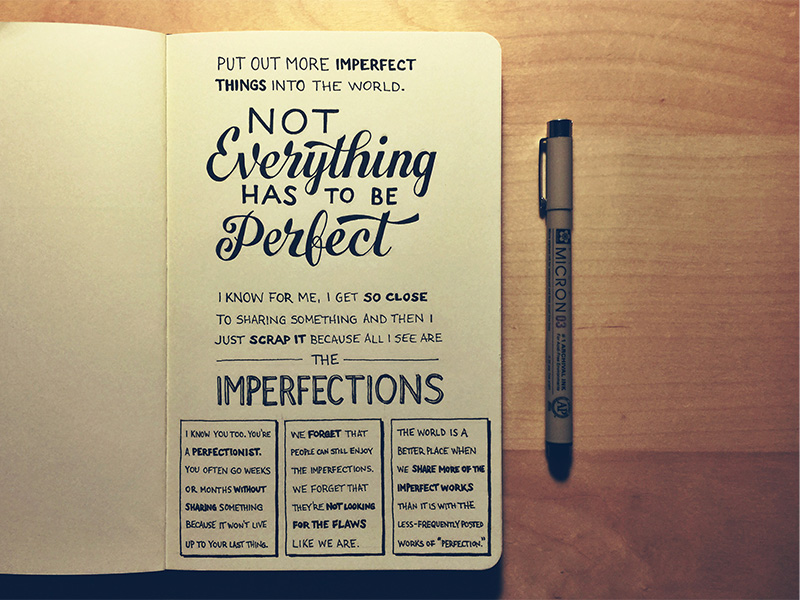 PUT OUT MORE IMPERFECT
THINGS INTO THE WORLD.
NOT
Everything
HAS TO BE
Perfect
I KNOW FOR ME, I GET SO CLOSE
TO SHARING SOMETHING AND THEN I
JUST SCRAP IT BECAUSE ALL I SEE ARE
THE
IMPERFECTIONS
I KNOW YOU TOO. YOU'RE
A PERFECTIONIST.
YOU OFTEN GO WEEKS
OR MONTHS WITHOUT
SHARING SOMETHING
BECAUSE IT WON'T LIVE
UP TO YOUR LAST THING.
WE FORGET THAT
PEOPLE CAN STILL ENJOY
THE IMPERFECTIONS.
WE FORGET THAT
THEY'RE NOT LOOKING
FOR THE FLAWS
LIKE WE ARE.
THE WORLD IS A
BETTER PLACE WHEN
WE SHARE MORE OF THE
IMPERFECT WORKS
THAN IT IS WITH THE
LESS-FREQUENTLY POSTED
WORKS OF "PERFECTION."
MICRON 03
#1 ARCHIVAL INK
AP